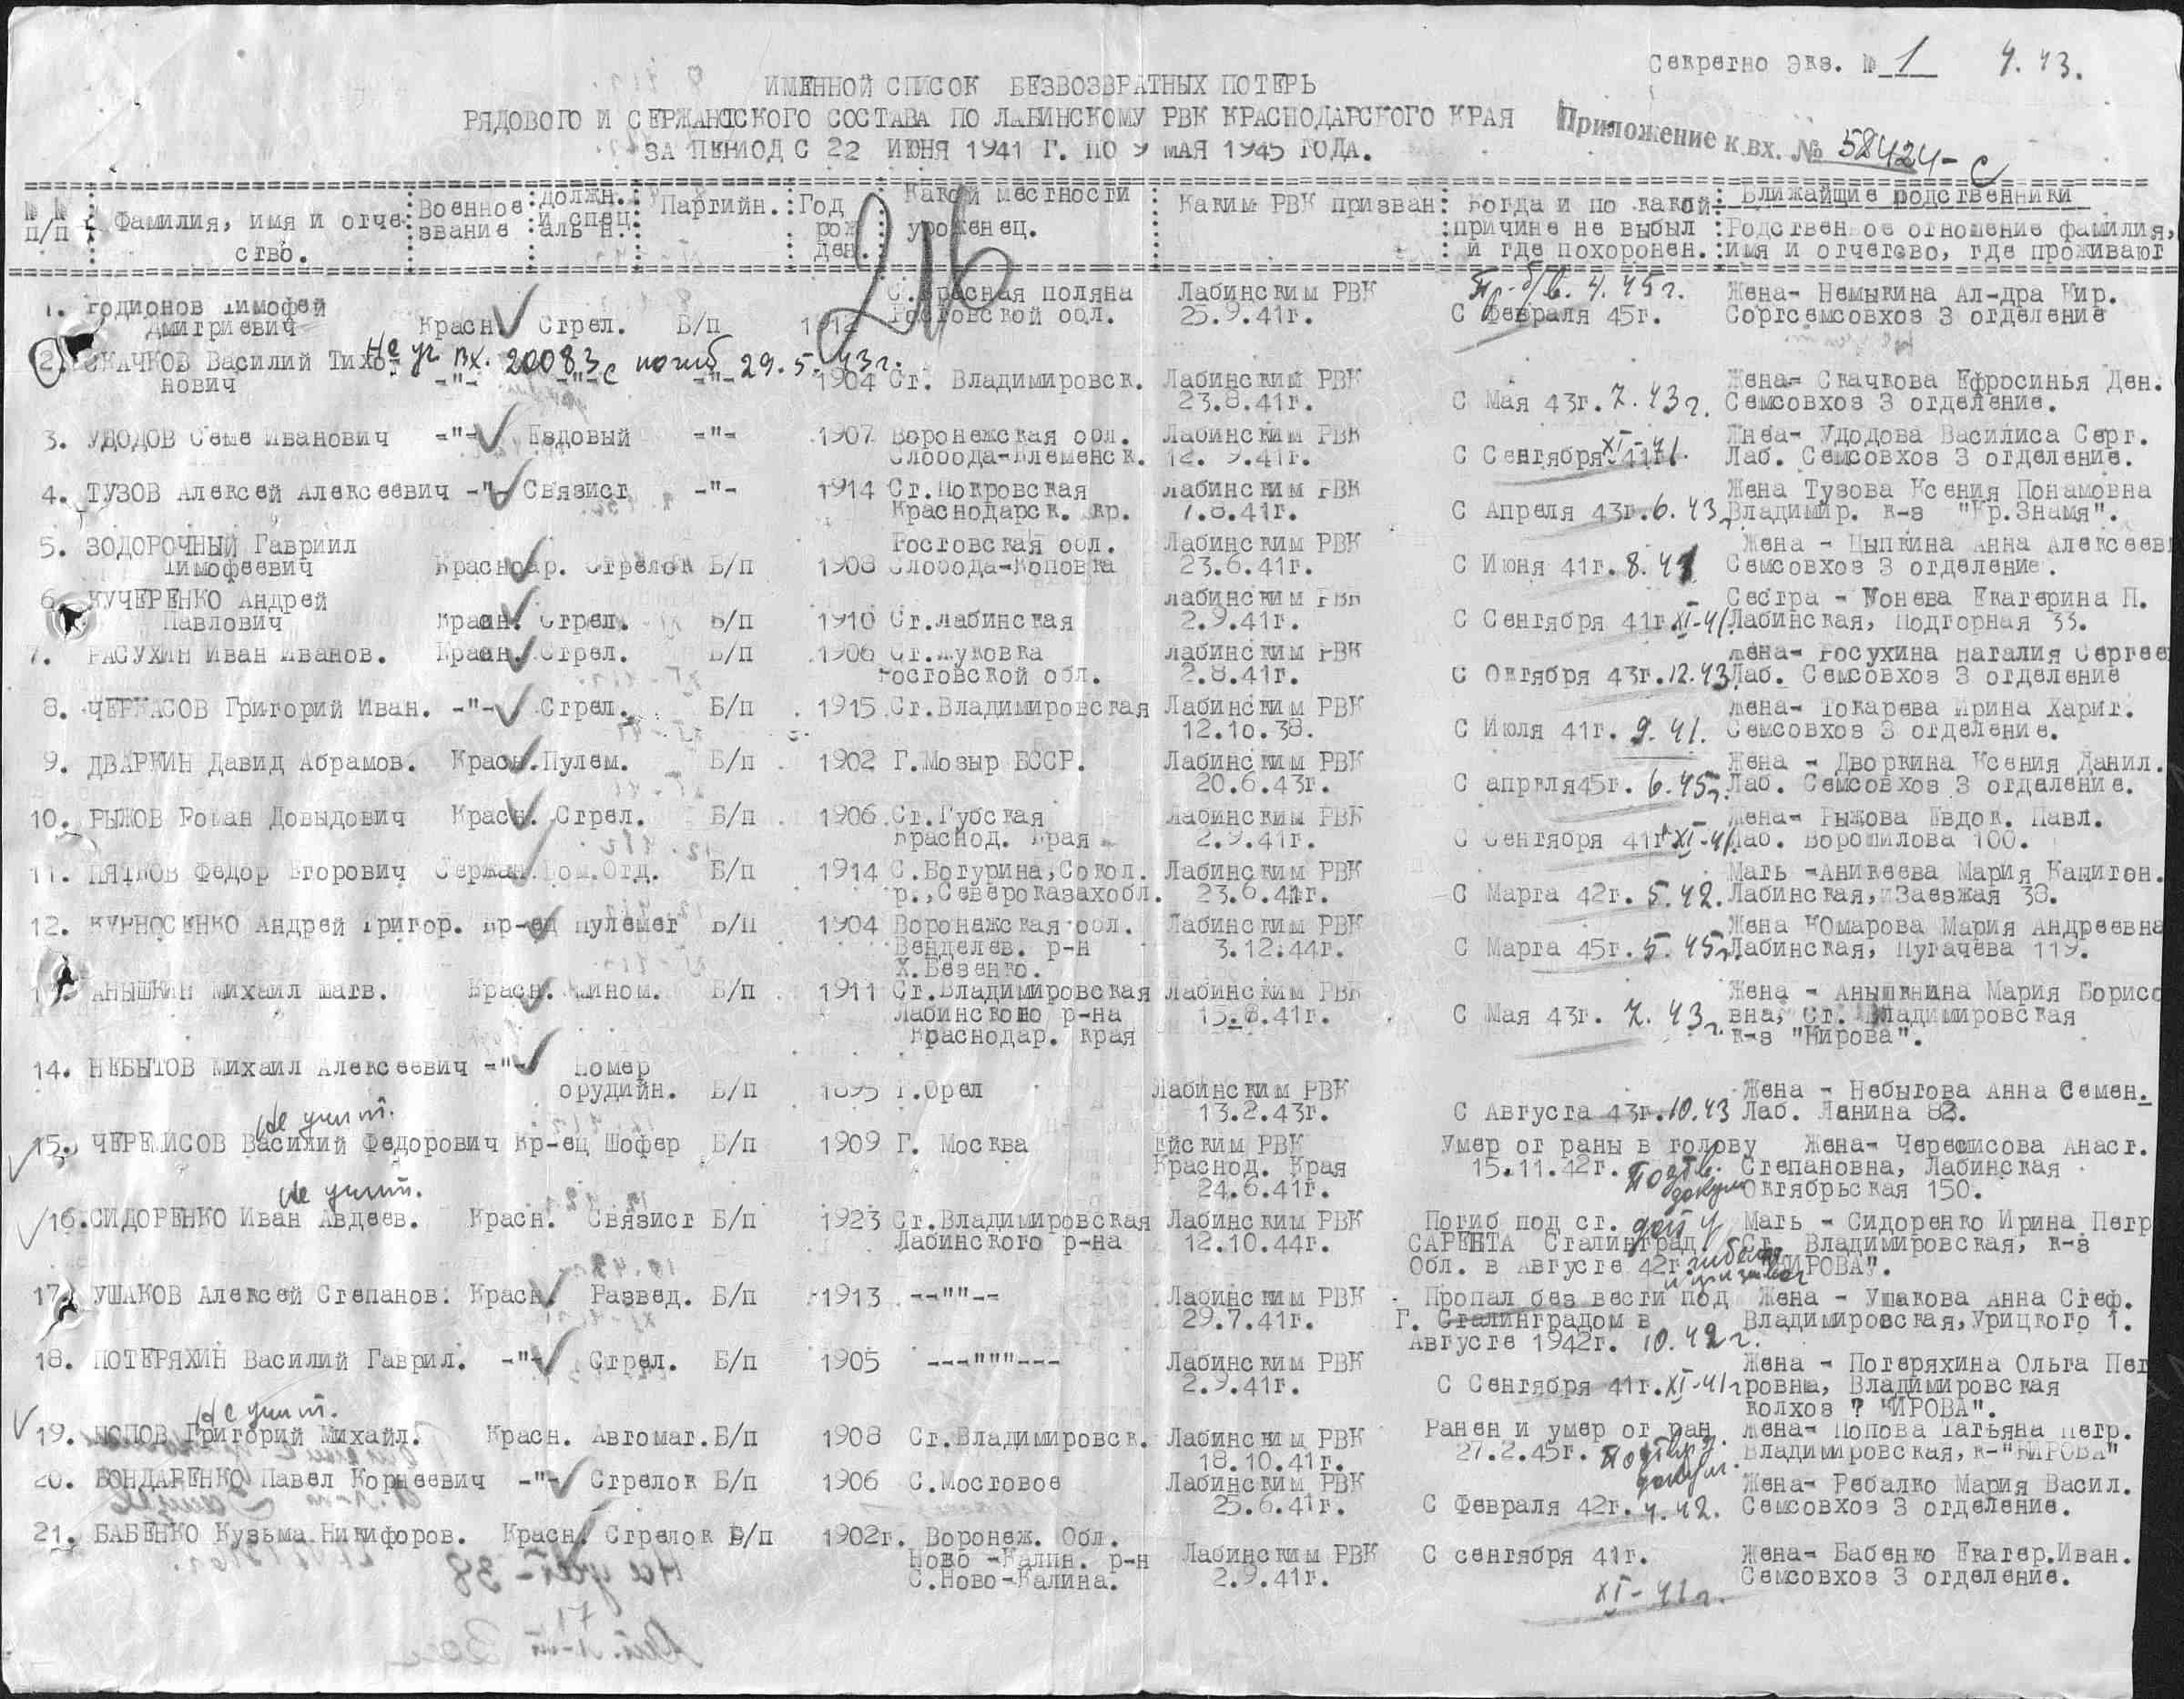 Секретно Экз. № 1 4.43.
ИМЕННОЙ СПИСОК БЕЗВОЗВРАТНЫХ ПОТЕРЬ
РЯДОВОГО И СЕРЖАНТСКОГО СОСТАВА ПО ЛАБИНСКОМУ РВК КРАСНОДАРСКОГО КРАЯ
Приложение к вх. № 58424-с
ЗА ПЕРИОД С 22 ИЮНЯ 1941 Г. ПО 9 МАЯ 1945 ГОДА.
№ № п/п Фамилия, имя и отчество. Военное звание Должн. и спец. Партийн. Год рожден. Какой местности уроженец. Каким РВК призван Когда и по какой причине не выбыл и где похоронен. Ближайшие родственники Родственное отношение фамилия, имя и отчетсво, где проживают
216
1. Родионов Тимофей С. Красная поляна Лабинским РВК Пр. б/в. 4.45г. Жена- Немыкина Ал-дра Кир.
Дмитриевич Красн. Стрел. Б/п 1912 Ростовской обл. 25.9.41г. С февраля 45г. Сортсемсовхоз 3 отделение
2. СКАЧКОВ Василий Тихо- Не уч вх. 20083с погиб 29.5.43г.
нович -"- -"- -"- 1904 Ст. Владимировск. Лабинским РВК Жена- Скачкова Ефросинья Ден.
23.8.41г. С Мая 43г. 7.43г. Семсовхоз 3 отделение.
3. УДОДОВ Семе Иванович -"- Ездовый -"- 1907 Воронежская обл. Лабинским РВК Жнеа- Удодова Василиса Серг.
Слобода-Клеменск. 12. 9.41г. С Сентября 41г. XI-41. Лаб. Семсовхоз 3 отделение.
4. ТУЗОВ Алексей Алексеевич -"- Связист -"- 1914 Ст.Покровская Лабинским РВК Жена Тузова Ксения Понамовна
Краснодарск. кр. 7.8.41г. С Апреля 43г. 6.43 Владимир. к-з "Кр.Знамя".
5. ЗОДОРОЧНЫЙ Гавриил Ростовская обл. Лабинским РВК Жена - Цыпкина Анна Алексеевн
Тимофеевич Красноар. Стрелок Б/п 1908 Слобода-Коповка 23.6.41г. С Июня 41г. 8.41 Семсовхоз 3 отделение.
6. КУЧЕРЕНКО Андрей Лабинским РВК Сестра - Конева Екатерина П.
Павлович Красн. Стрел. Б/п 1910 Ст.Лабинская 2.9.41г. С Сентября 41г XI-41. Лабинская, Подгорная 33.
7. РАСУХИН Иван Иванов. Красн. Стрел. Б/п 1906 Ст.Жуковка Лабинским РВК Жена- Росухина Наталия Сергее
Ростовской обл. 2.8.41г. С Октября 43г. 12.43 Лаб. Семсовхоз 3 отделение
8. ЧЕРКАСОВ Григорий Иван. -"- Стрел. Б/п 1915 Ст.Владимировская Лабинским РВК Жена- Токарева Ирина Харит.
12.10.38. С Июля 41г. 9.41. Семсовхоз 3 отделение.
9. ДВАРКИН Давид Абрамов. Красн. Пулем. Б/п 1902 Г.Мозыр БССР. Лабинским РВК Жена - Дворкина Ксения Данил.
20.6.43г. С апреля45г. 6.45г. Лаб. Семсовхоз 3 отделение.
10. РЫЖОВ Роман Довыдович Красн. Стрел. Б/п 1906 Ст.Губская Лабинским РВК Жена- Рыжова Евдок. Павл.
Краснод. Края 2.9.41г. С Сентября 41г XI-41. Лаб. Ворошилова 100.
11. ПЯТКОВ Федор Егорович Сержан. Ком.Отд. Б/п 1914 С.Богурина,Сокол. Лабинским РВК Мать -Аникеева Мария Капитон.
р.,Североказахобл. 23.6.41г. С Марта 42г. 5.42. Лабинская, Заезжая 38.
12. КУРНОСЕНКО Андрей Григор. Кр-ец Пулемет Б/П 1904 Воронежская обл. Лабинским РВК Жена Юмарова Мария Андреевна
Венделев. р-н 3.12.44г. С Марта 45г. 5.45г Лабинская, Пугачёва 119.
Х.Безенко.
13. АНЫШКИН Михаил Матв. Красн. Мином. Б/п 1911 Ст.Владимировская Лабинским РВК Жена - Анышкнина Мария Борисо
Лабинского р-на 15.8.41г. С Мая 43г. 7.43г. вна, Ст. Владимировская
Краснодар. края к-з "Кирова".
14. НЕБЫТОВ Михаил Алексеевич -"- Номер
орудийн. Б/п 1895 Г.Орел Лабинским РВК Жена - Небытова Анна Семен.
13.2.43г. С Августа 43г. 10.43 Лаб. Ланина 82.
Не учит.
15. ЧЕРЕМИСОВ Василий Федорович Кр-ец Шофер Б/п 1909 Г. Москва Ейским РВК Умер от раны в голову Жена- Черемисова Анаст.
Краснод. Края 15.11.42г. Подтв. Степановна, Лабинская
24.6.41г. докум Октябрьская 150.
Не учит.
16. СИДОРЕНКО Иван Авдеев. Красн. Связист Б/п 1923 Ст.Владимировская Лабинским РВК Погиб под ст. Мать - Сидоренко Ирина Петр
Лабинского р-на 12.10.44г. САРЕПТА Сталинград. Ст. Владимировская, к-з
Обл. в Августе 42г. "КИРОВА".
17. УШАКОВ Алексей Степанов. Красн. Развед. Б/п 1913 --""-- Лабинским РВК Пропал без вести под Жена - Ушакова Анна Стеф.
29.7.41г. Г. Сталинградом в Владимировская,Урицкого 1.
Августе 1942г. 10.42г.
18. ПОТЕРЯХИН Василий Гаврил. -"- Стрел. Б/п 1905 ---"""--- Лабинским РВК Жена - Потеряхина Ольга Пет
2.9.41г. С Сентября 41г. XI-41г ровна, Владимировская
колхоз ? КИРОВА".
Не учит.
19. ПОПОВ Григорий Михайл. Красн. Автомат. Б/п 1908 Ст.Владимировск. Лабинским РВК Ранен и умер от ран. Жена- Попова Татьяна Петр.
18.10.41г. 27.2.45г. Подтвер. докум. Владимировская, к-"КИРОВА"
20. БОНДАРЕНКО Павел Корнеевич -"- Стрелок Б/п 1906 С.Мостовое Лабинским РВК Жена- Ребалко Мария Васил.
25.6.41г. С Февраля 42г. 4.42. Семсовхоз 3 отделение.
21. БАБЕНКО Кузьма Никифоров. Красн. Стрелок Б/п 1902г. Воронеж. Обл.
Ново -Калин. р-н Лабинским РВК С сентября 41г. Жена- Бабенко Екатер.Иван.
С.Ново-Калина. 2.9.41г. XI-41г. Семсовхоз 3 отделение.